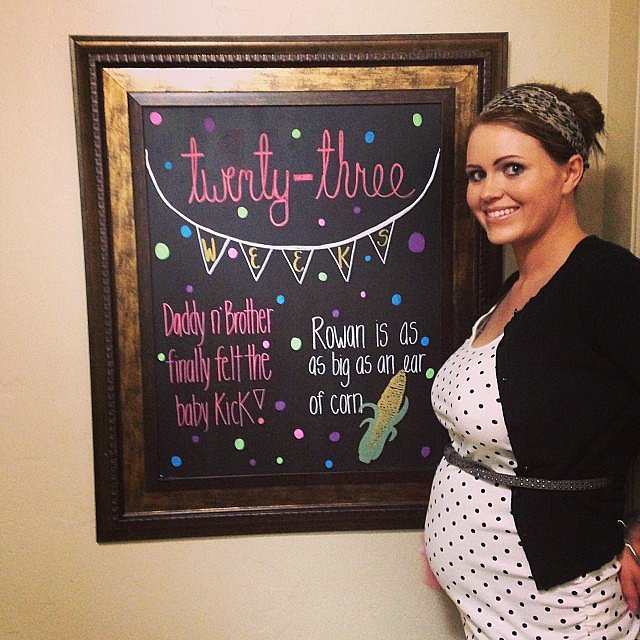 twenty-three
WEEKS
Daddy n' Brother
finally felt the
baby Kick!
Rowan is as
as big as an ear
of corn